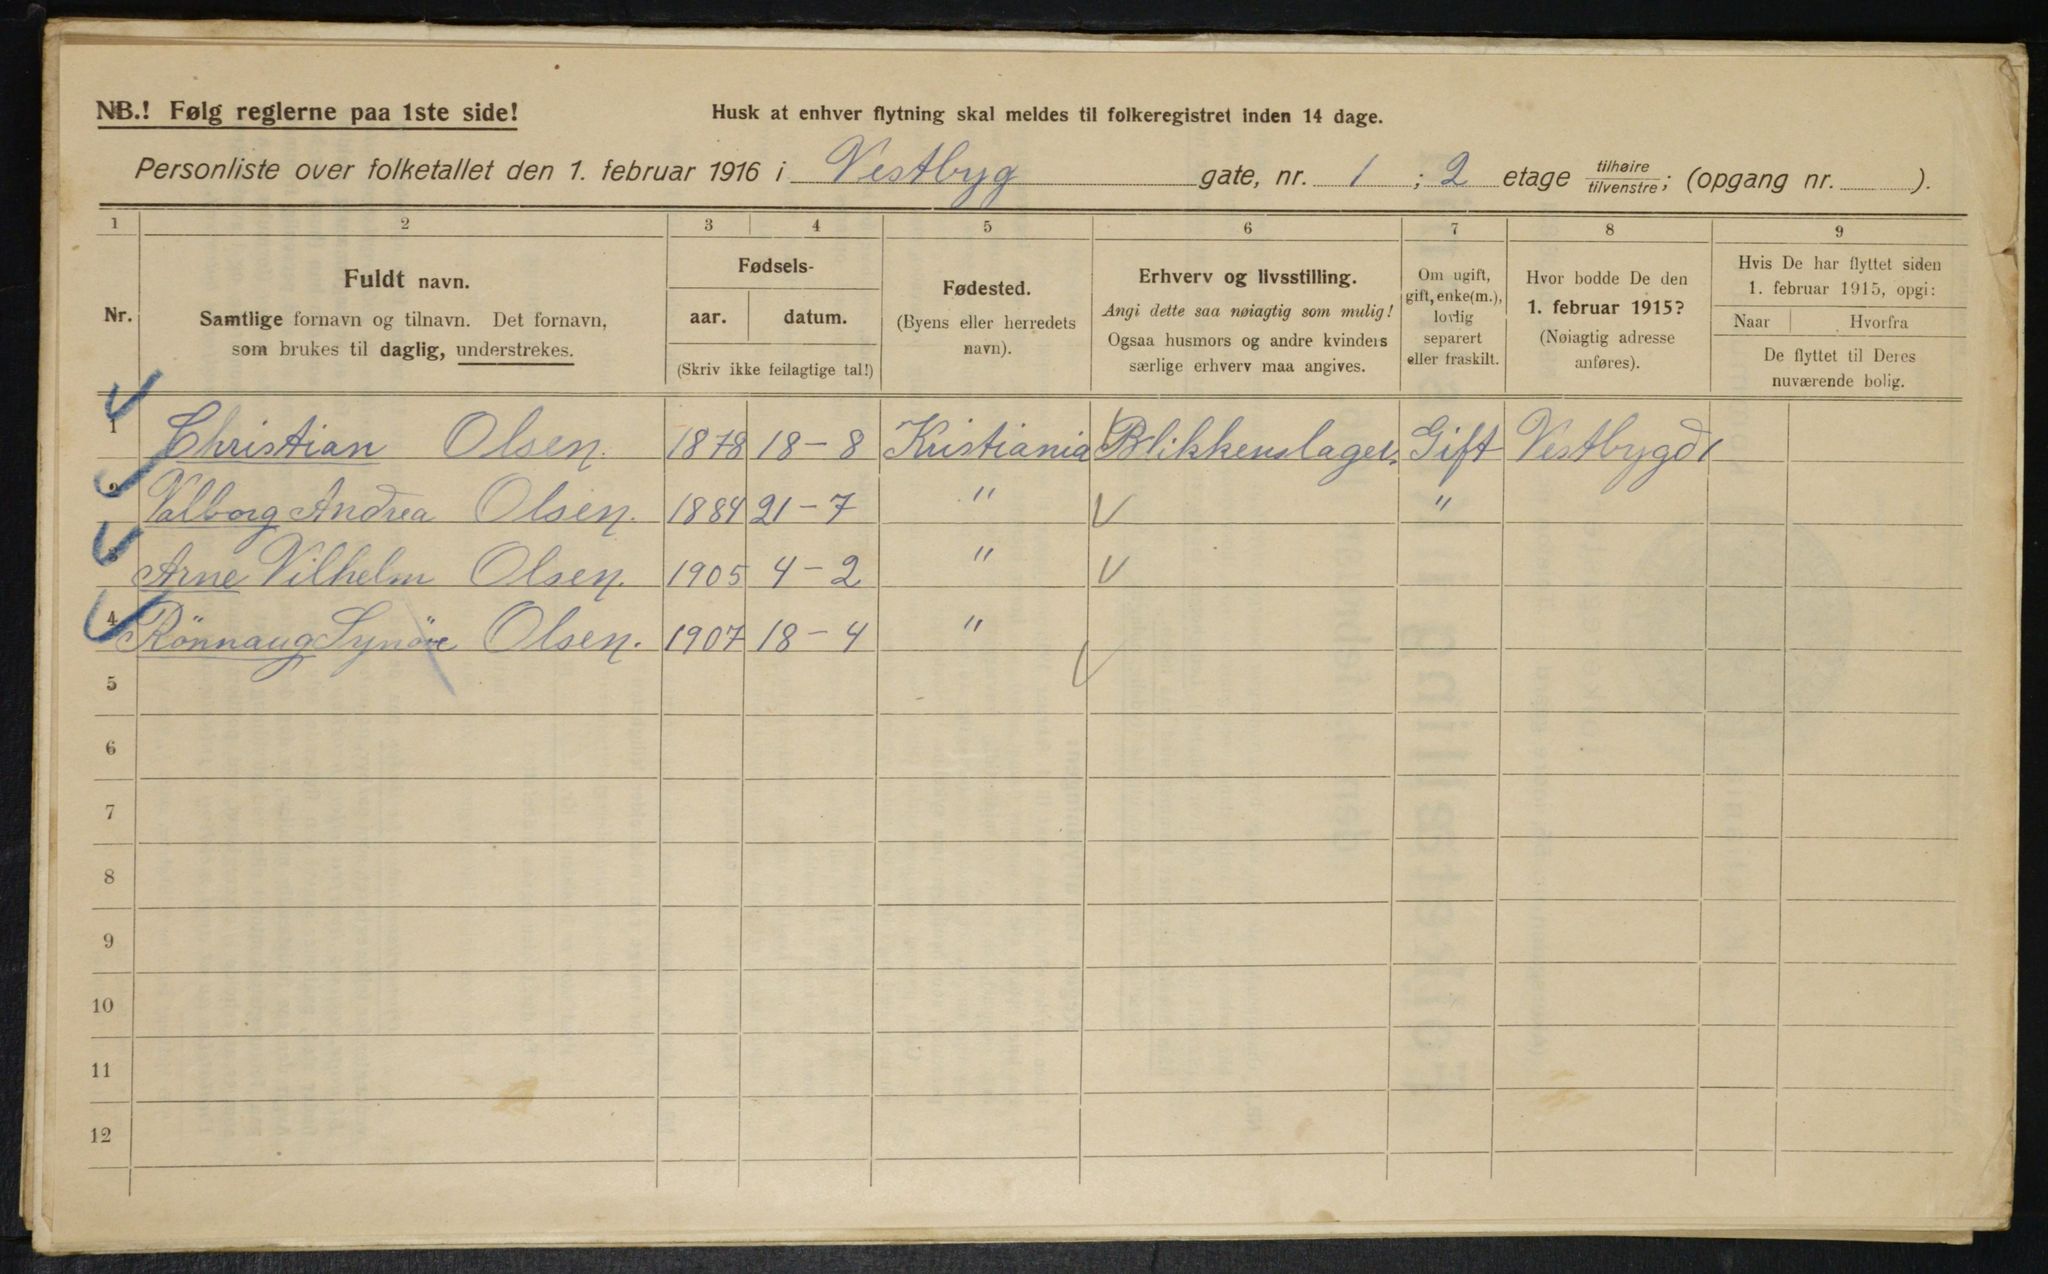 NB.! Følg reglerne paa 1ste side!
Husk at enhver flytning skal meldes til folkeregistret inden 14 dage.
Personliste over folketallet den 1. februar 1916 i Vestbyg gate, nr. 1 ; 2 etage tilhøire/tilvenstre; (opgang nr. ).
1 2 3 4 5 6 7 8 9
Nr.
Fuldt navn.
Samtlige fornavn og tilnavn. Det fornavn,
som brukes til daglig, understrekes.
Fødsels-
aar. datum.
(Skriv ikke feilagtige tal!)
Fødested.
(Byens eller herredets
navn).
Erhverv og livsstilling.
Angi dette saa nøiagtig som mulig!
Ogsaa husmors og andre kvinders
særlige erhverv maa angives.
Om ugift,
gift, enke(m.),
lovlig
separert
eller fraskilt.
Hvor bodde De den
1. februar 1915?
(Nøiagtig adresse
anføres).
Hvis De har flyttet siden
1. februar 1915, opgi:
Naar Hvorfra
De flyttet til Deres
nuværende bolig.
1 Christian Olsen. 1878 18-8 Kristiania Blikkenslager. Gift Vestbygd 1
2 Valborg Andrea Olsen. 1884 21-7 " "
3 Arne Vilhelm Olsen. 1905 4-2 "
4 Rönnaug Synöve Olsen. 1907 18-4 "
5
6
7
8
9
10
11
12